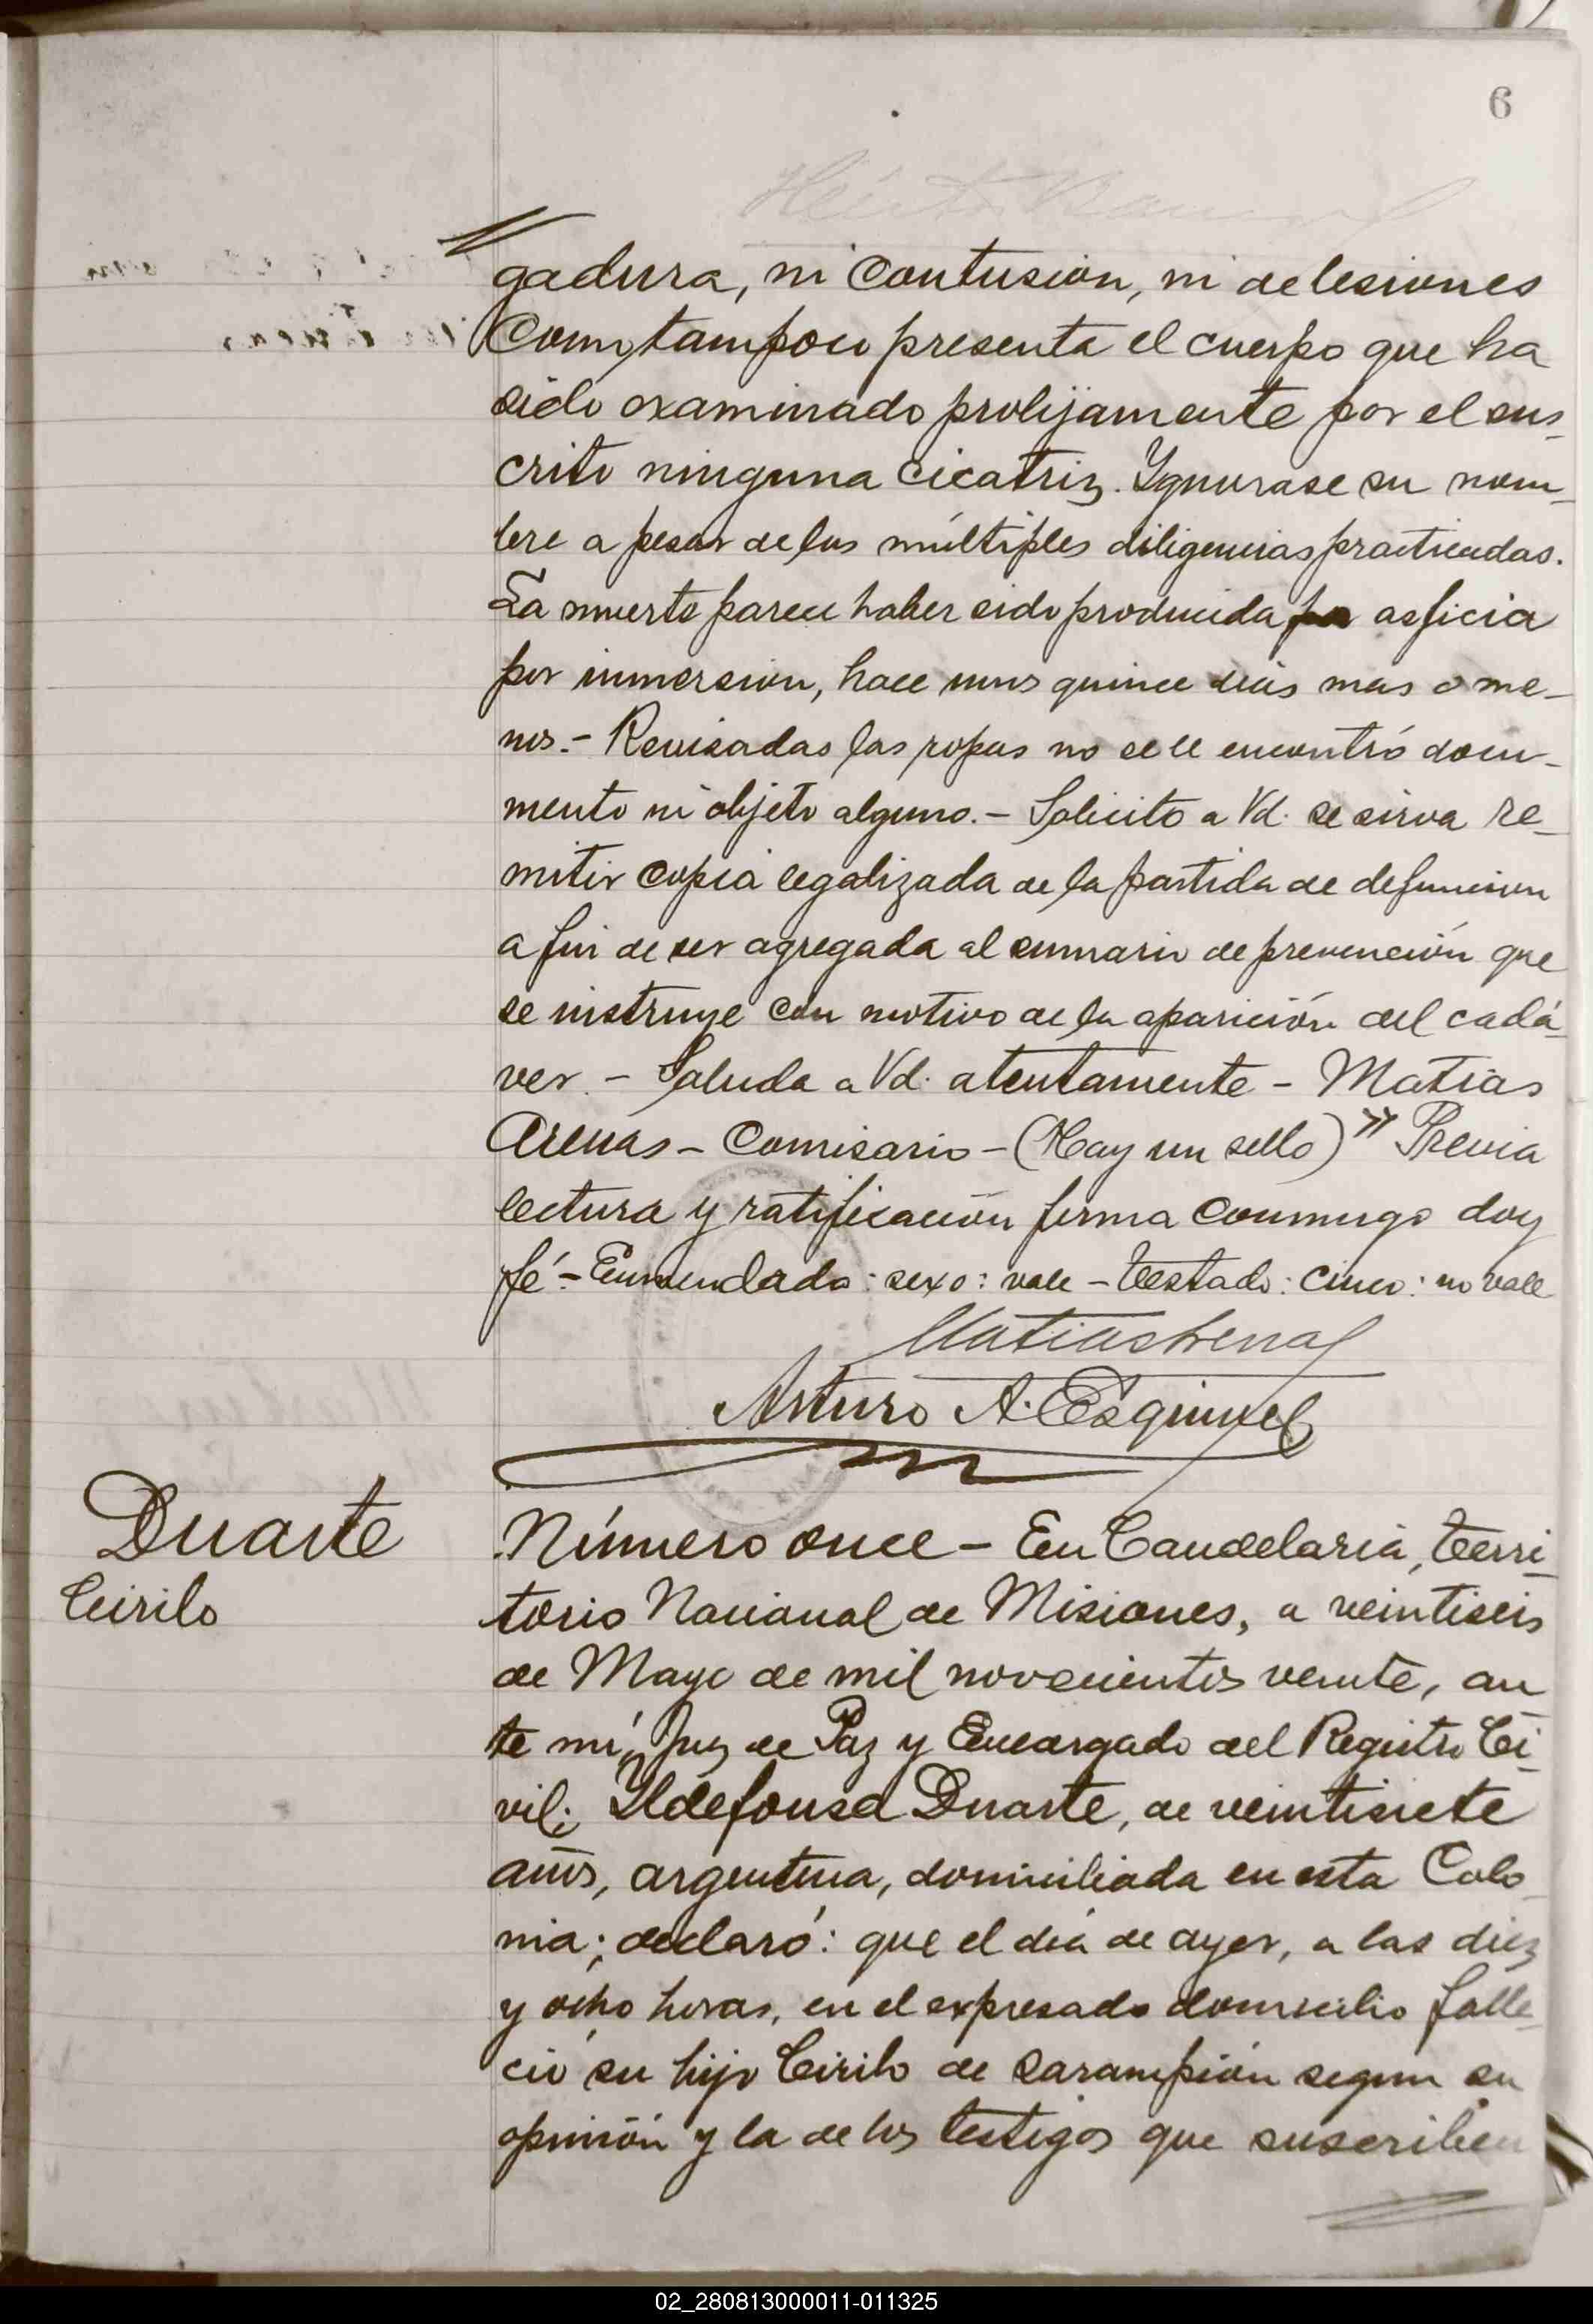 6
gadura, ni contusion, ni de lesiones
Como tampoco presenta el cuerpo que ha
sido examinado prolijamente por el sus-
crito ninguna cicatriz. Ygnorase su nom-
bre a pesar de las múltiples diligencias practicadas.
La muerte parece haber sido producida por asficia
por inmersion, hace unos quince dias mas o me-
nos.- Revisadas las ropas no se le encontró docu-
mento ni objeto alguno.- Solicito a Vd. se sirva re-
mitir copia legalizada de la partida de defuncion
a fin de ser agregada al sumario de prevención que
se instruye con motivo de la aparición del cadá-
ver. - Saluda a Vd. atentamente - Matias
Arenas - Comisario - (Hay un sello)" Previa
lectura y ratificación firma conmigo doy
fé.- Enmendado: sexo: vale - Testado: cinco: no vale
Matias Arenas
Arturo A. Esquivel
Duarte
Cirilo
Número once - En Candelaria, terri-
torio Nacional de Misiones, a veintiseis
de Mayo de mil novecientos veinte, an-
te mí, Juez de Paz y Encargado del Registro Ci-
vil; Yldefonsa Duarte, de veintisiete
años, argentina, domiciliada en esta Colo-
nia; declaró: que el día de ayer, a las diez
y ocho horas, en el expresado domicilio falle-
ció su hijo Cirilo de sarampión segun su
opinión y la de los testigos que suscriben
02_280813000011-011325